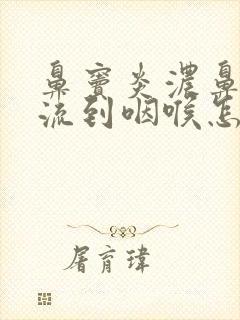 鼻窦炎浓鼻
流到咽喉怎
屠育瑋